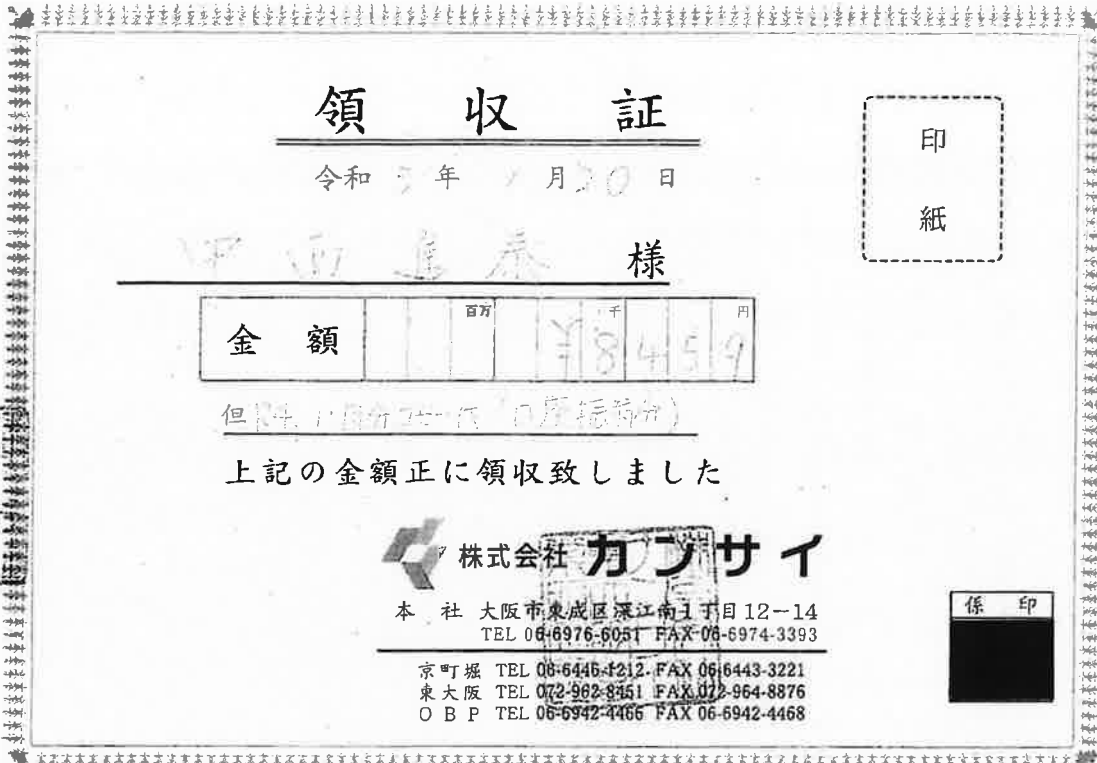 領収証
令和 年 月20日
様
印紙
金額 百万 千 円
¥8459
但
上記の金額正に領収致しました
株式会社 カンサイ
本社 大阪市東成区深江南1丁目12-14
TEL 06-6976-6051 FAX 06-6974-3393
京町堀 TEL 06-6446-1212 FAX 06-6443-3221
東大阪 TEL 072-962-8451 FAX 072-964-8876
OBP TEL 06-6942-4466 FAX 06-6942-4468
係印